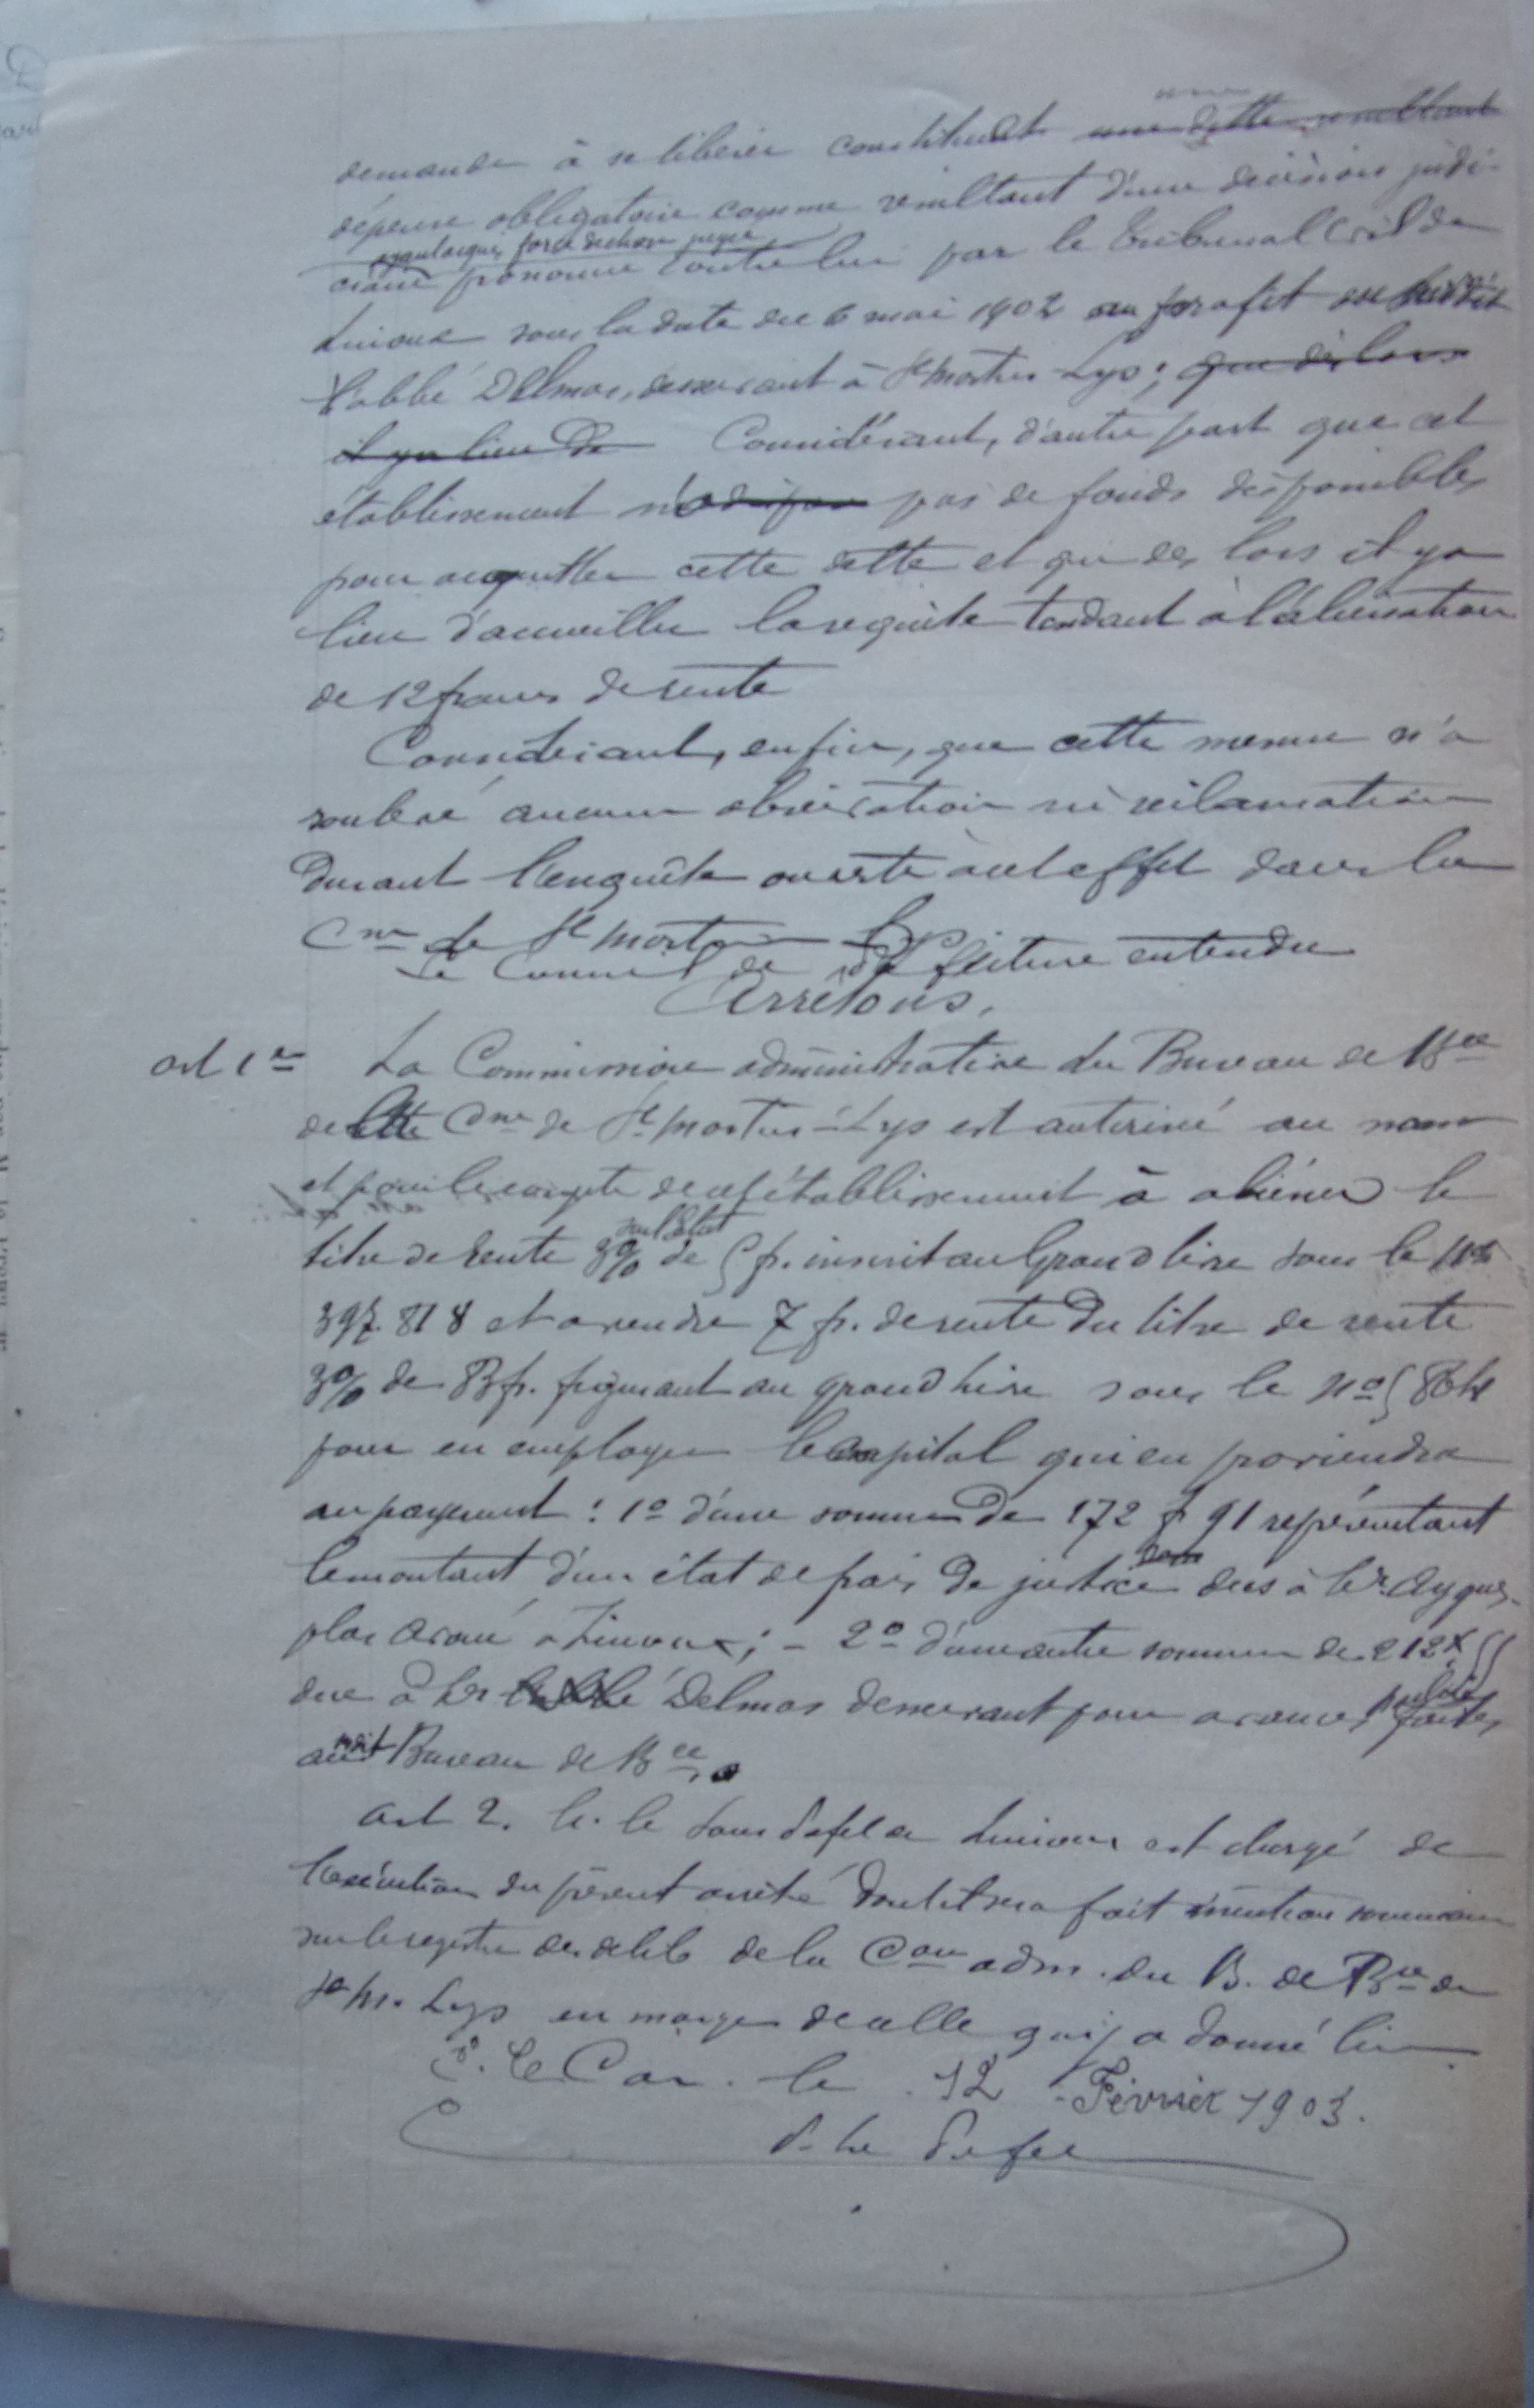 demande à se libérer constituent une dette resultant
dépense obligatoire comme résultant d'une décision judi-
ayant acquis force de chose jugée
ciaire prononcée contre lui par le tribunal civil de
Limoux sous la date du 6 mai 1902 au profit
l'abbé Delmas, desservant à St Martin-Lys; que dès lors
il y a lieu de Considérant, d'autre part que cet
établissement n'a pas de fonds disponibles
pour acquitter cette dette et que dès lors il y a
lieu d'accueillir la requête tendant à l'aliénation
de 12 francs de rente
Considérant, enfin, que cette mesure n'a
soulevé aucune observation ni réclamation
durant l'enquête ouverte à cet effet dans la
Cne de St Martin Lys.
Le Conseil de Préfecture entendu
Arrêtons.
art 1er La Commission administrative du Bureau de Bce
de cette Cne de St Martin-Lys est autorisé au nom
et pour le compte de cet établissement à aliéner le
sur l'Etat
titre de rente 3% de 5 f. inscrit au Grand livre sous le No
397.818 et a vendre 7 f. de rente du titre de rente
3% de f. figurant au grand livre sous le no
pour en employer le capital qui en proviendra
au payement : 1o d'une somme de 172 f 91 représentant
le montant d'un état de frais de justice dus à Mr. Ayques
plas avoué à Limoux; - 2o d'une autre somme de 212 f.
due à Mr l'abbé Delmas desservant pour avances faites
audit Bureau de Bce.
art 2. M. le Sous Préfet de Limoux est chargé de
l'exécution du présent arrêté dont il sera fait mention sommaire
sur le registre des délib de la Con adm. du B. de Bce de
St M. Lys en marge de celle qui y a donné lieu
Car. le 12 Février 1903.
P. Le Préfet